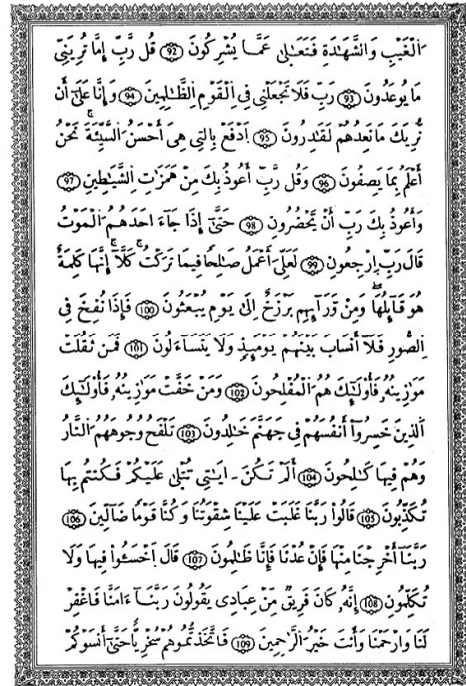 اَ۬لْغَيْبِ وَالشَّهَٰدَةِ فَتَعَٰلَىٰ عَمَّا يُشْرِكُونَ (92) قُل رَّبِّ إِمَّا تُرِيَنِّي
مَا يُوعَدُونَ (93) رَبِّ فَلَا تَجْعَلْنِي فِي اِ۬لْقَوْمِ اِ۬لظَّٰلِمِينَ (94) وَإِنَّا عَلَىٰٓ أَن
نُّرِيَكَ مَا نَعِدُهُمْ لَقَٰدِرُونَ (95) اِ۪دْفَعْ بِالتِي هِيَ أَحْسَنُ اُ۬لسَّيِّئَةَۚ نَحْنُ
أَعْلَمُ بِمَا يَصِفُونَ (96) وَقُل رَّبِّ أَعُوذُ بِكَ مِنْ هَمَزَٰتِ اِ۬لشَّيَٰطِينِ (97)
وَأَعُوذُ بِكَ رَبِّ أَنْ يَّحْضُرُونِ (98) حَتَّىٰٓ إِذَا جَآءَ احَدَهُمُ اُ۬لْمَوْتُ
قَالَ رَبِّ اِ۪رْجِعُونِ (99) لَعَلِّيَ أَعْمَلُ صَٰلِحاٗ فِيمَا تَرَكْتُۚ كَلَّآۚ إِنَّهَا كَلِمَةٌ
هُوَ قَآئِلُهَاۖ وَمِنْ وَّرَآئِهِم بَرْزَخٌ إِلَىٰ يَوْمِ يُبْعَثُونَ (100) فَإِذَا نُفِخَ فِي
اِ۬لصُّورِ فَلَآ أَنسَابَ بَيْنَهُمْ يَوْمَئِذٍ وَلَا يَتَسَآءَلُونَ (101) فَمَن ثَقُلَتْ
مَوَٰزِينُهُۥ فَأُوْلَٰٓئِكَ هُمُ اُ۬لْمُفْلِحُونَ (102) وَمَنْ خَفَّتْ مَوَٰزِينُهُۥ فَأُوْلَٰٓئِكَ
اَ۬لذِينَ خَسِرُوٓاْ أَنفُسَهُمْ فِي جَهَنَّمَ خَٰلِدُونَ (103) تَلْفَحُ وُجُوهَهُمُ اُ۬لنَّارُ
وَهُمْ فِيهَا كَٰلِحُونَ (104) أَلَمْ تَكُنَ ـ ايَٰتِي تُتْلَىٰ عَلَيْكُمْ فَكُنتُم بِهَا
تُكَذِّبُونَ (105) قَالُواْ رَبَّنَا غَلَبَتْ عَلَيْنَا شِقْوَتُنَا وَكُنَّا قَوْماٗ ضَآلِّينَ (106)
رَبَّنَآ أَخْرِجْنَا مِنْهَا فَإِنْ عُدْنَا فَإِنَّا ظَٰلِمُونَ (107) قَالَ اَ۪خْسَـُٔواْ فِيهَا وَلَا
تُكَلِّمُونِ (108) إِنَّهُۥ كَانَ فَرِيقٌ مِّنْ عِبَادِي يَقُولُونَ رَبَّنَآ ءَامَنَّا فَاغْفِرْ
لَنَا وَارْحَمْنَا وَأَنتَ خَيْرُ اُ۬لرَّٰحِمِينَ (109) فَاتَّخَذتُّمُوهُمْ سُخْرِيّاً حَتَّىٰٓ أَنسَوْكُمْ